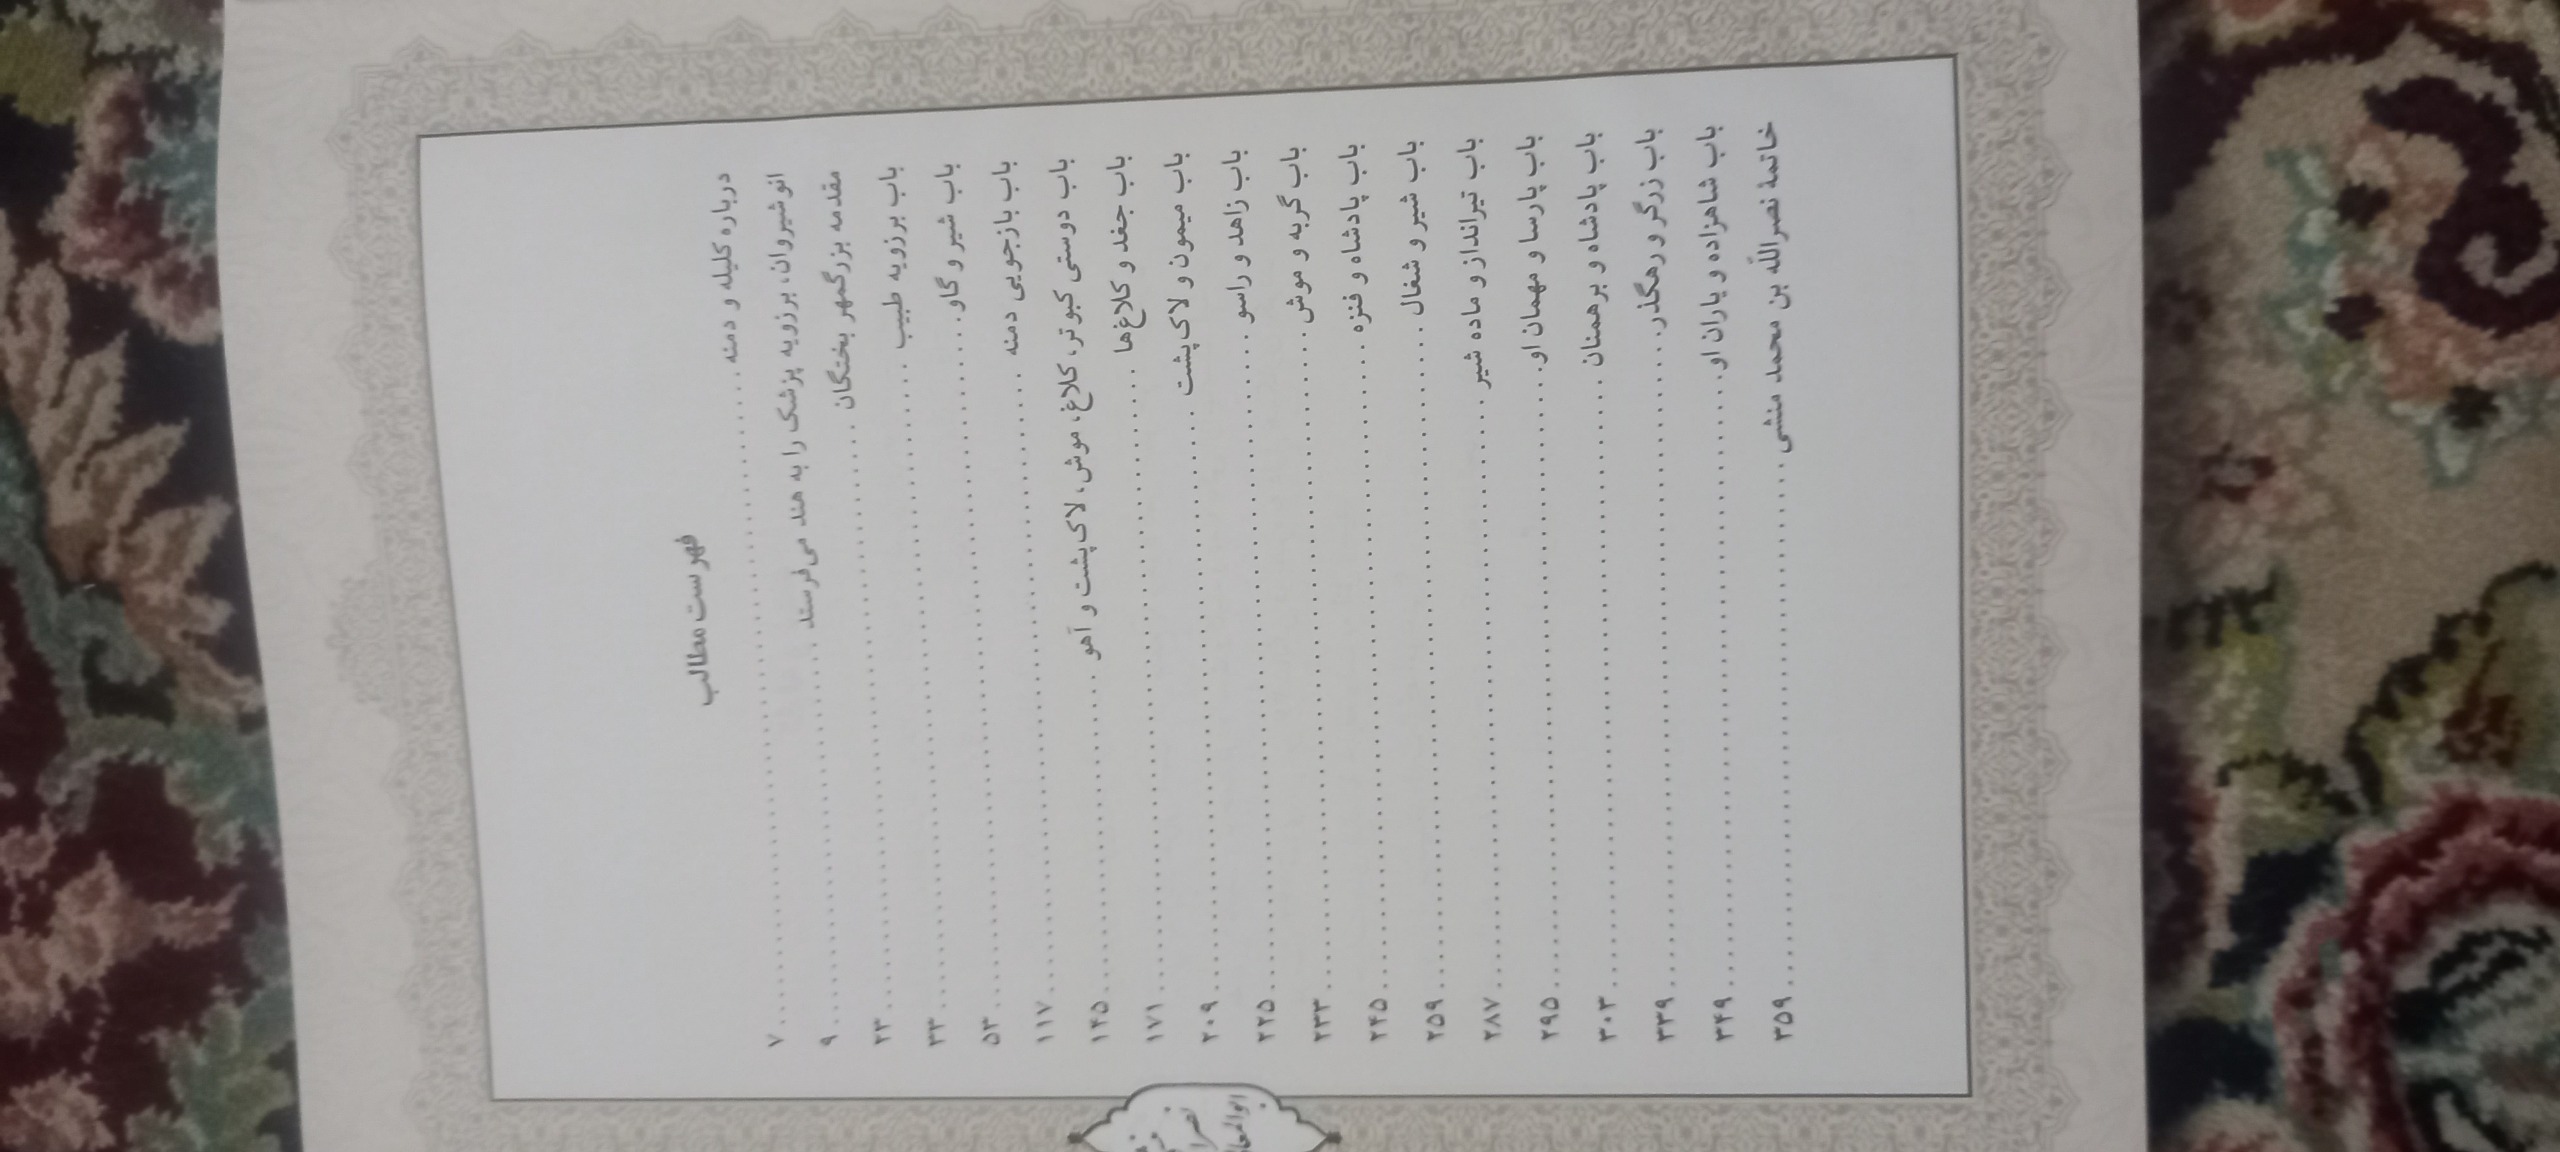 فهرست مطالب
درباره کلیله و دمنه ........ ۷
انوشیروان، برزویه پزشک را به هند می‌فرستد ........ ۹
مقدمه بزرگمهر بختگان ........ ۲۳
باب برزویه طبیب ........ ۳۳
باب شیر و گاو ........ ۵۳
باب بازجویی دمنه ........ ۱۱۷
باب دوستی کبوتر، کلاغ، موش، لاک‌پشت و آهو ........ ۱۴۵
باب جغد و کلاغ‌ها ........ ۱۷۱
باب میمون و لاک‌پشت ........ ۲۰۹
باب زاهد و راسو ........ ۲۲۵
باب گربه و موش ........ ۲۳۳
باب پادشاه و فنزه ........ ۲۴۵
باب شیر و شغال ........ ۲۵۹
باب تیرانداز و ماده شیر ........ ۲۸۷
باب پارسا و مهمان او ........ ۲۹۵
باب پادشاه و برهمنان ........ ۳۰۳
باب زرگر و رهگذر ........ ۳۳۹
باب شاهزاده و یاران او ........ ۳۴۹
خاتمهٔ نصرالله بن محمد منشی ........ ۳۵۹